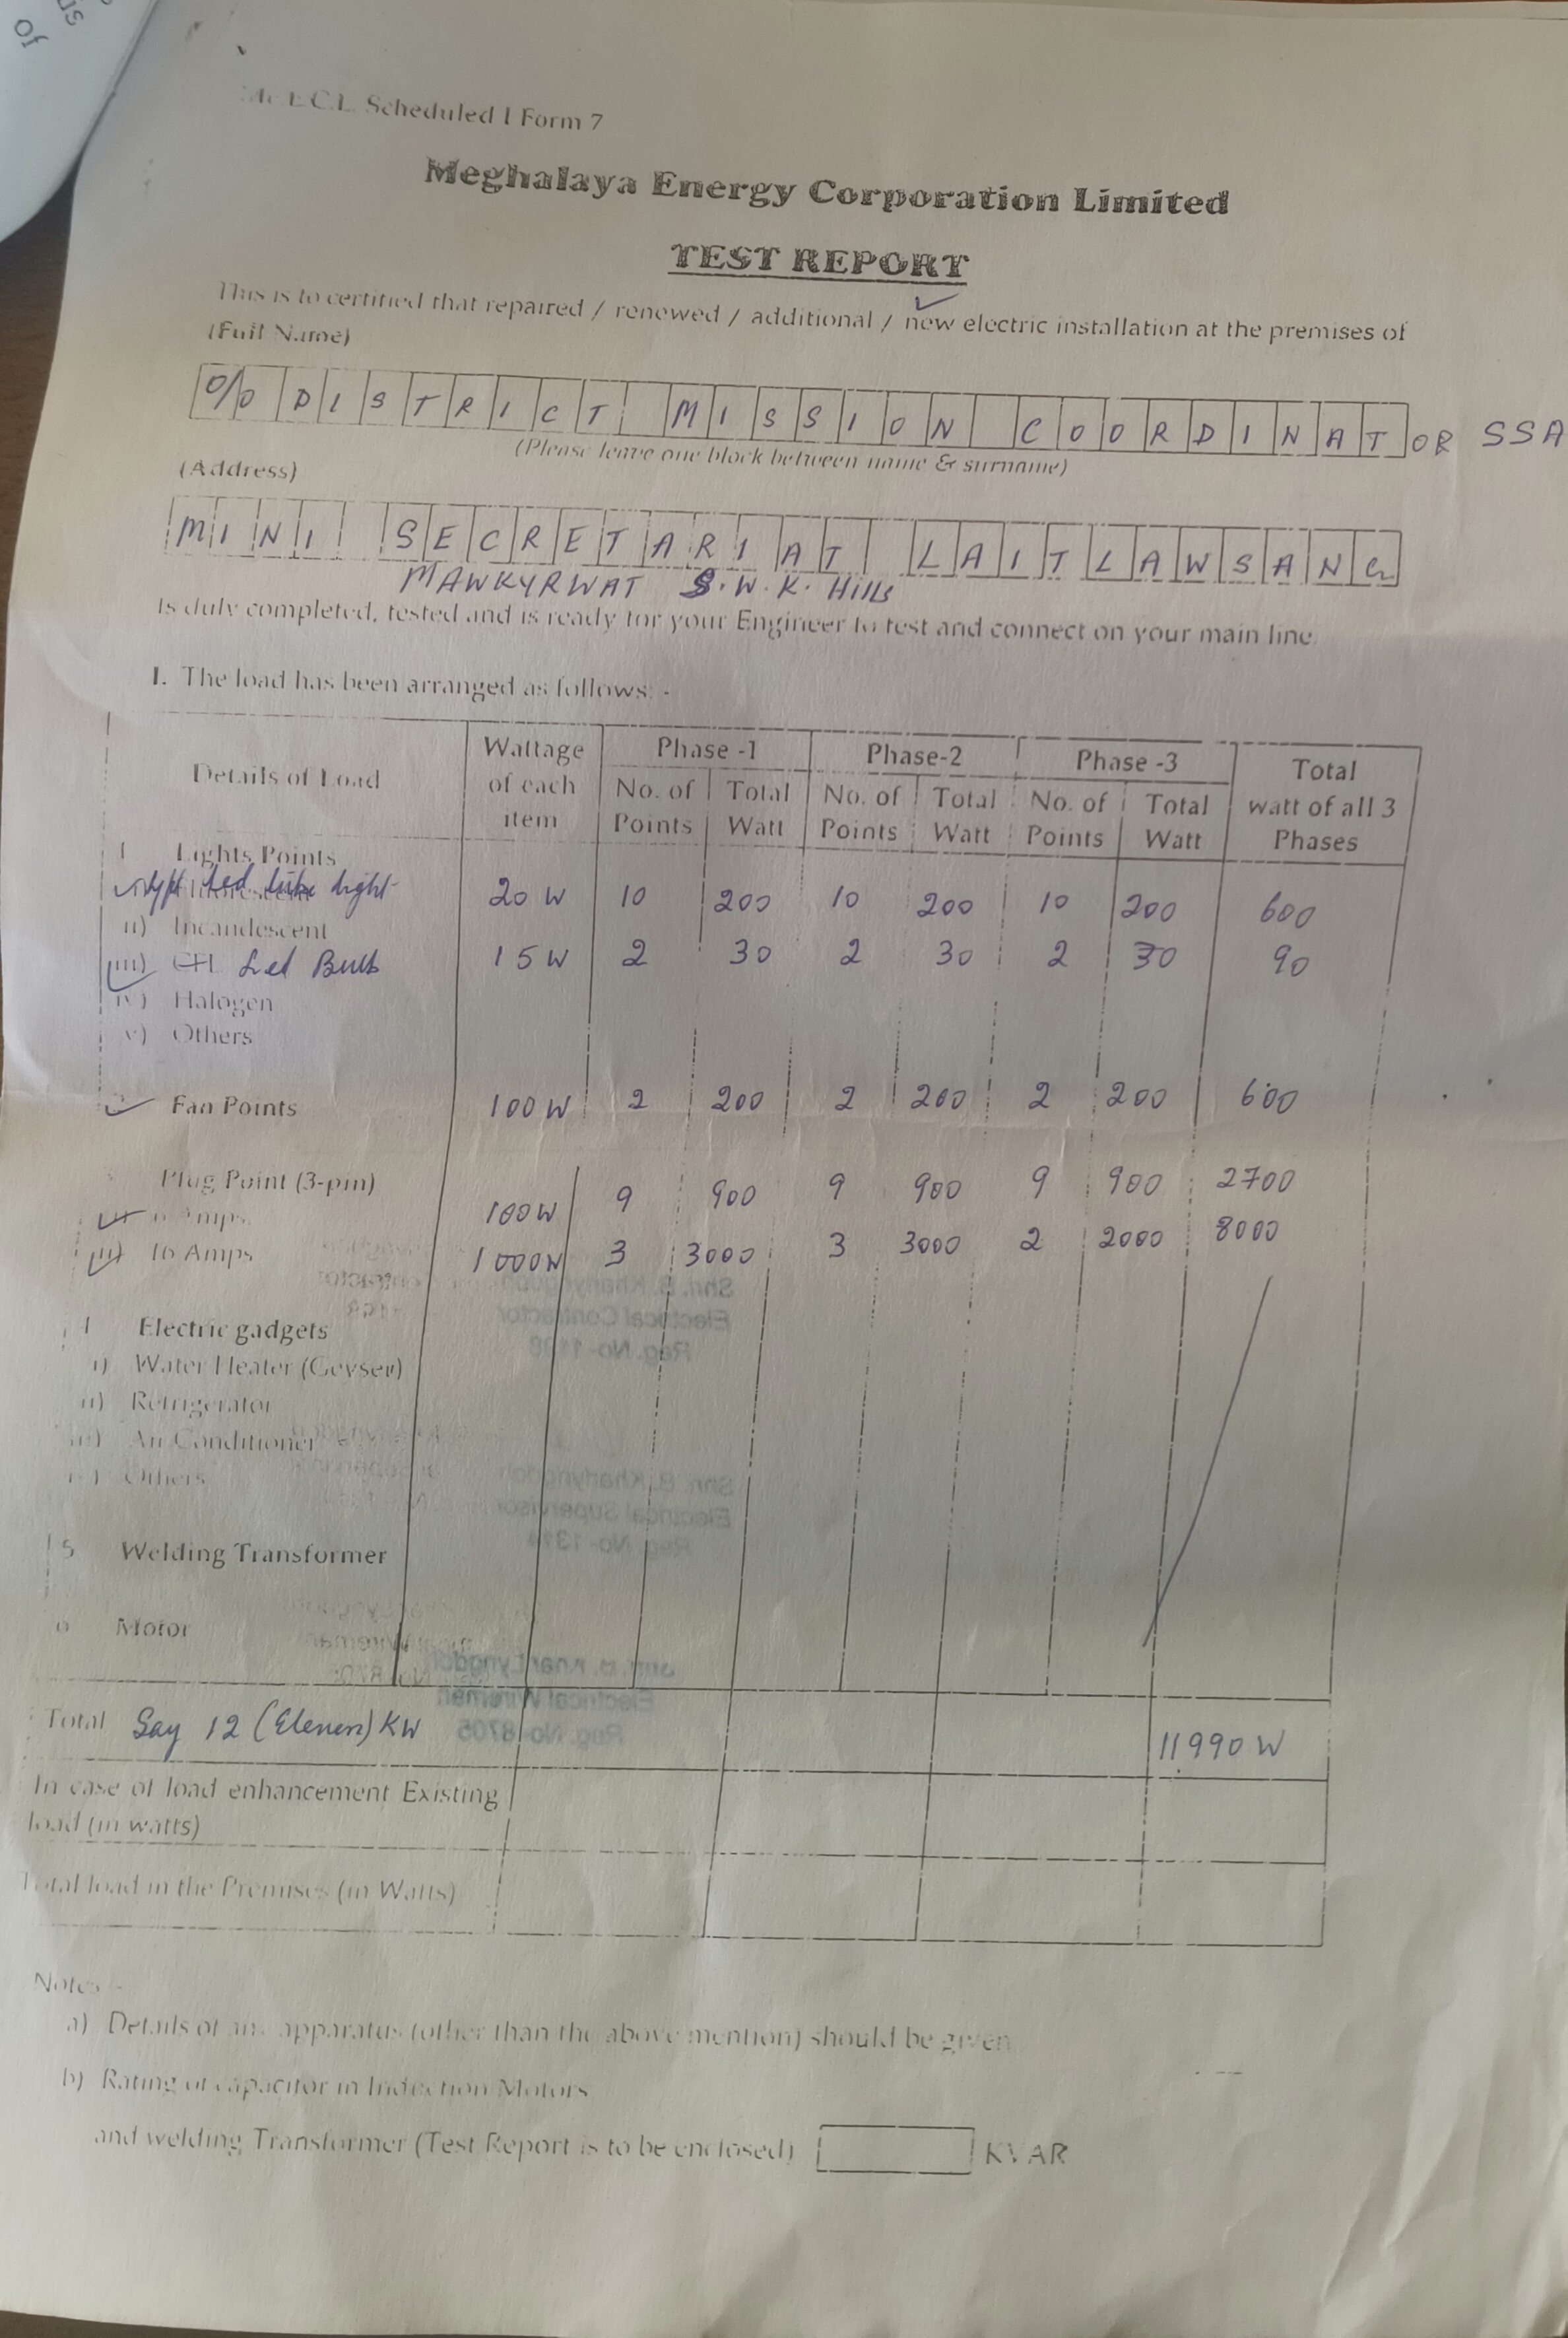 of
Me.E.C.L. Scheduled I Form 7
Meghalaya Energy Corporation Limited
TEST REPORT
This is to certified that repaired / renewed / additional / new electric installation at the premises of
(Full Name)
O/O DISTRICT MISSION COORDINATOR SSA
(Please leave one block between name & surname)
(Address)
MINI SECRETARIAT LAITLAWSANG
MAWKYRWAT S.W.K. Hills
Is duly completed, tested and is ready for your Engineer to test and connect on your main line.
1. The load has been arranged as follows: -
Details of Load Wattage of each item Phase -1 Phase-2 Phase -3 Total watt of all 3 Phases
No. of Points Total Watt No. of Points Total Watt No. of Points Total Watt
1 Lights Points
Led tube light 20 W 10 200 10 200 10 200 600
ii) Incandescent
iii) CFL Led Bulb 15 W 2 30 2 30 2 30 90
iv) Halogen
v) Others
Fan Points 100 W 2 200 2 200 2 200 600
Plug Point (3-pin)
6 Amps 100 W 9 900 9 900 9 900 2700
ii) 16 Amps 1000W 3 3000 3 3000 2 2000 8000
Electric gadgets
i) Water Heater (Geyser)
ii) Refrigerator
iii) Air Conditioner
iv) Others
5 Welding Transformer
6 Motor
Total Say 12 (Eleven) KW 11990 W
In case of load enhancement Existing
load (in watts)
Total load in the Premises (in Watts)
Notes :-
a) Details of any apparatus (other than the above mention) should be given
b) Rating of capacitor in Induction Motors
and welding Transformer (Test Report is to be enclosed) KVAR
Shri. B. Kharlyngdoh
Electrical Contractor
Reg. No-1198
Shri. B. Kharlyngdoh
Electrical Supervisor
Reg. No-
Shri. B. Kharlyngdoh
Electrical Wireman
Reg. No-8705